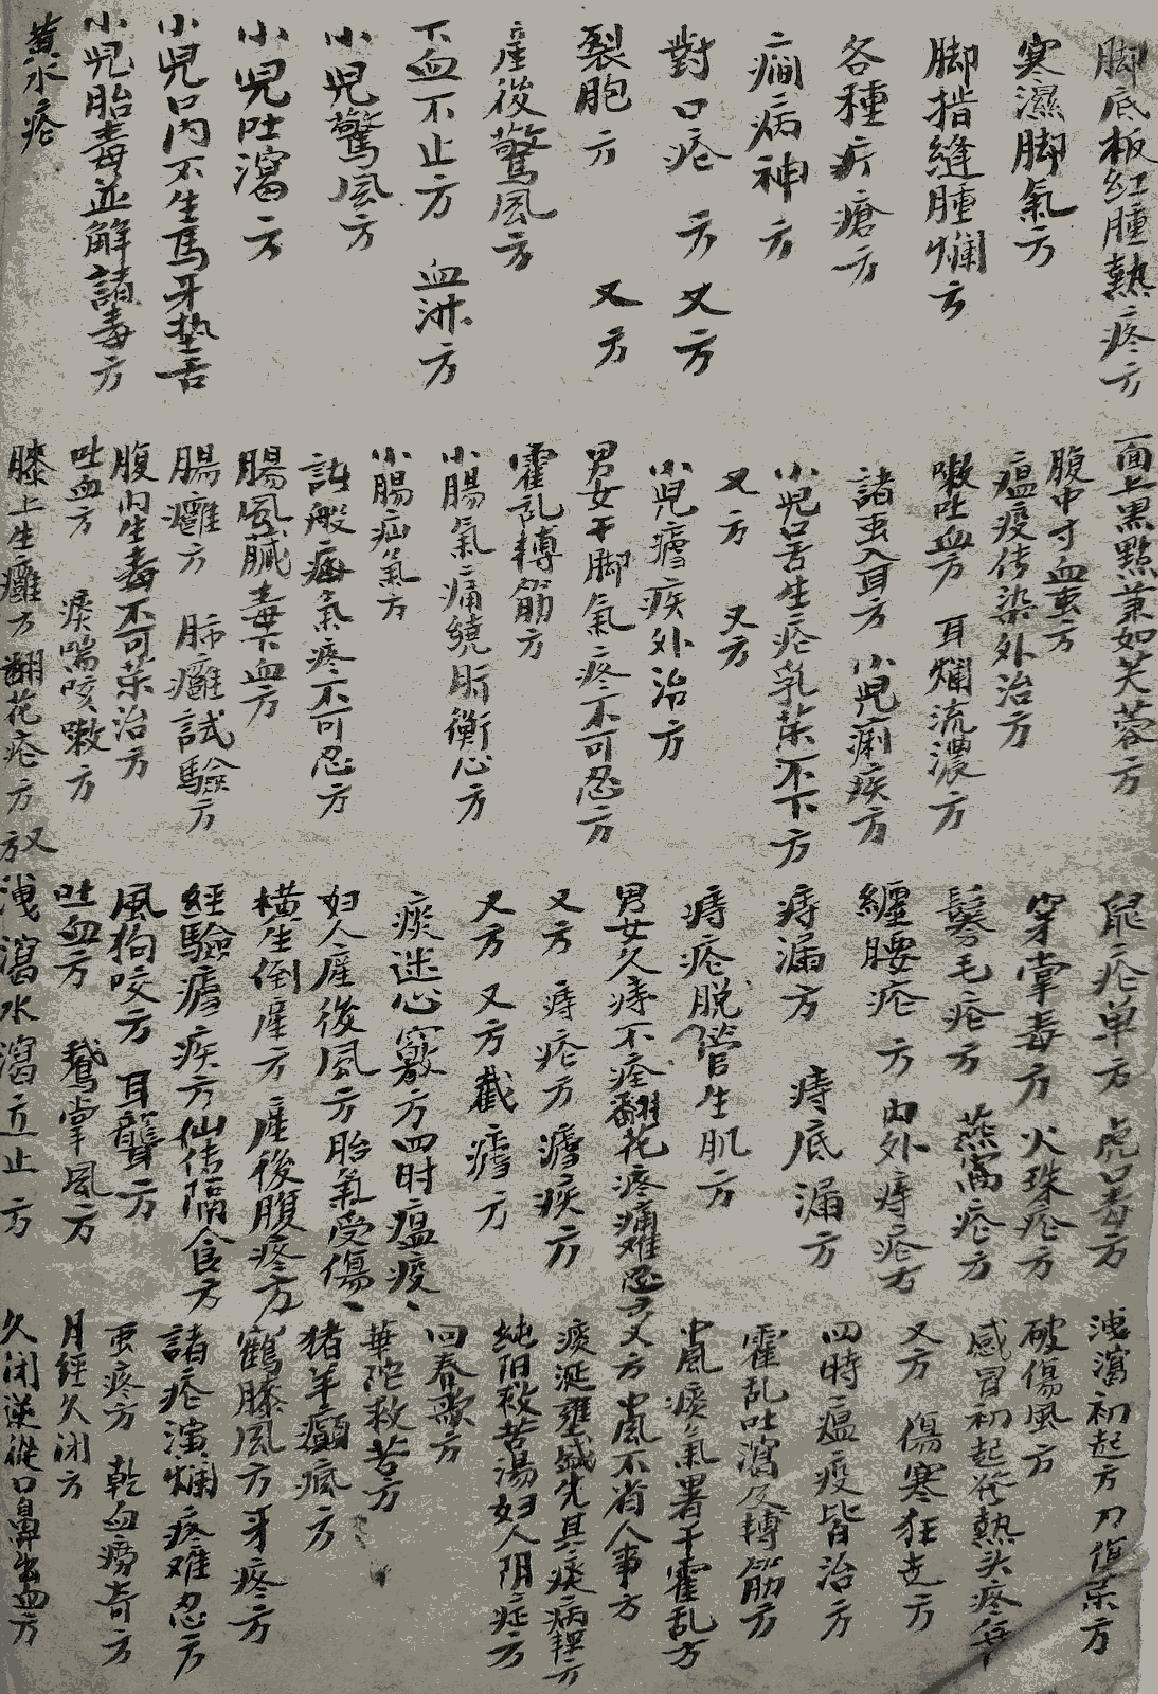 脚底板紅腫熱疼方
寒濕脚氣方
脚指縫腫爛方
各種疔瘡方
癎病神方
對口疮方 又方
裂胞方 又方
產後驚風方
下血不止方 血淋方
小児驚風方
小児吐瀉方
小児口內不生馬牙墊舌
小児胎毒並解諸毒方
黃水疮
面上黑點兼如芙蓉方
腹中寸血虫方
瘟疫传染外治方
嗽吐血方 耳爛流濃方
諸虫入耳方 小児痢疾方
小児口舌生疮乳茶不下方
又方 又方
小児瘧疾外治方
男女干脚氣疼不可忍方
霍乱轉筋方
小腸氣痛繞脐衝心方
小腸疝氣方
諸般痛氣疼不可忍方
腸風臟毒下血方
腸癰方 肺癰試驗方
腹內生毒不可茶治方
吐血方 痰喘咳嗽方
膝上生癰方 翻花疮方 又方
鼠疮单方 虎口毒方
穿掌毒方 火珠疮方
鬓毛疮方 燕窩疮方
纏腰疮方 內外痔疮方
痔漏方 痔底漏方
痔疮脱管生肌方
男女久痔不痊翻花疼痛难忍方
又方 痔疮方 瘧疾方
又方 又方 截瘧方
痰迷心竅方 四时瘟疫、
妇人產後風方 胎氣受傷、
橫生倒產方 產後腹疼方
經驗瘧疾方 仙传隔食方
風狗咬方 耳聾方
吐血方 鵝掌風方
洩瀉水瀉立止方
洩瀉初起方 刀傷茶方
破傷風方
感冒初起發熱头疼
又方 傷寒狂走方
四時瘟疫皆治方
霍乱吐瀉及轉筋方
中風痰氣署干霍乱方
又方 中風不省人事方
痰涎壅盛先其痰病
純阳救苦湯 妇人阴症方
回春散方
華陀救苦方
猪羊癲疯方
鶴膝風方 牙疼方
諸疮潰爛疼难忍方
虫疼方 乾血痨奇方
月經久闭方
久闭逆從口鼻出血方